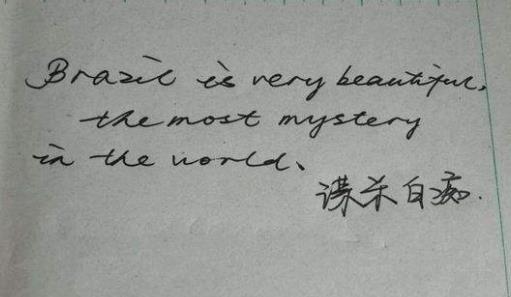 Brazil is very beautiful,
the most mystery
in the world、
谋杀白痴.